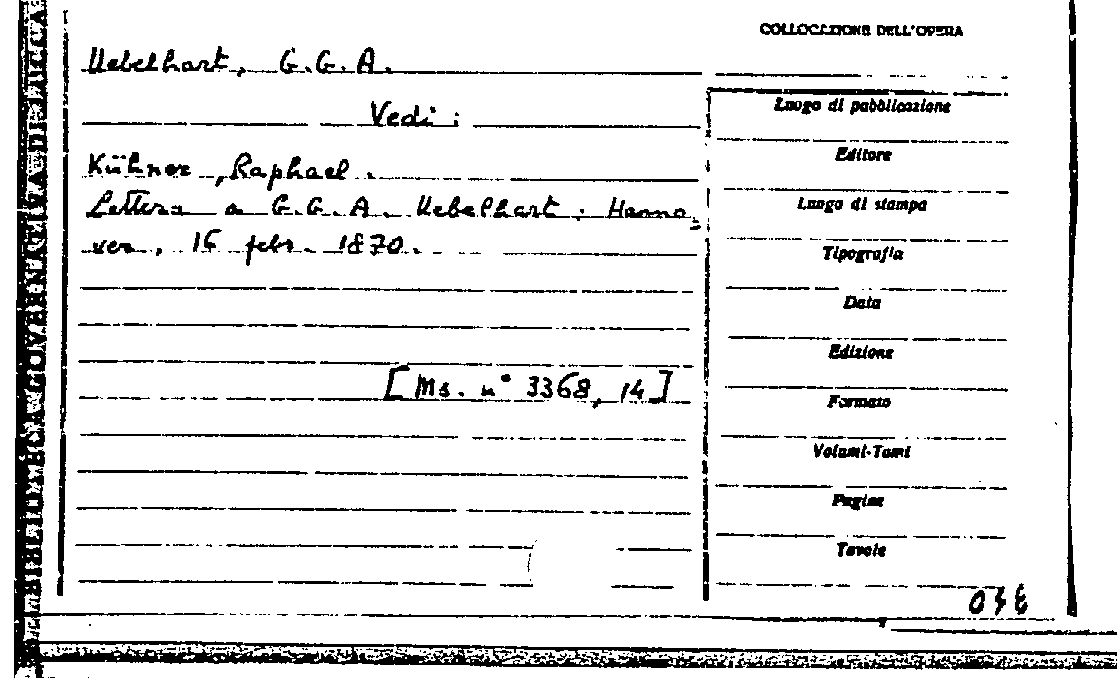 BIBLIOTECA GOVERNATIVA DI LUCCA
Uebelhart, G.G.A.
Vedi:
Kühner, Raphael.
Lettera a G.G.A. Uebelhart. Hanno=
ver, 16 febr. 1870.
[Ms. n° 3368, 14]
COLLOCAZIONE DELL'OPERA
Luogo di pubblicazione
Editore
Luogo di stampa
Tipografia
Data
Edizione
Formato
Volumi-Tomi
Pagine
Tavole